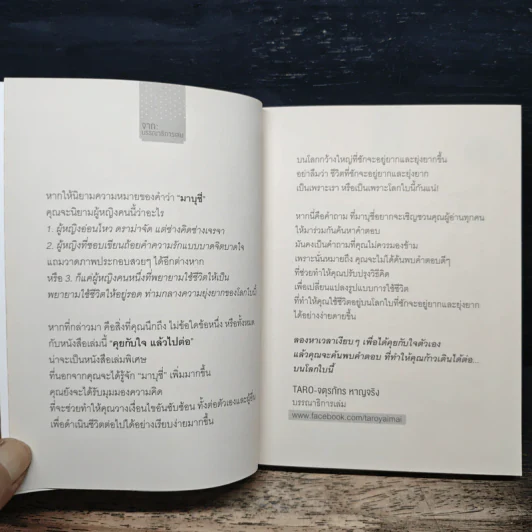 จาก:
บรรณาธิการเล่ม
หากให้นิยามความหมายของคำว่า "มาบุชี่"
คุณจะนิยามผู้หญิงคนนี้ว่าอะไร
1. ผู้หญิงอ่อนไหว ดราม่าจัด แต่ช่างคิดช่างเจรจา
2. ผู้หญิงที่ชอบเขียนถ้อยคำความรักแบบบาดจิตบาดใจ
แถมวาดภาพประกอบสวยๆ ได้อีกต่างหาก
หรือ 3. ก็แค่ผู้หญิงคนหนึ่งที่พยายามใช้ชีวิตให้เป็น
พยายามใช้ชีวิตให้อยู่รอด ท่ามกลางความยุ่งยากของโลกใบนี้
หากที่กล่าวมา คือสิ่งที่คุณนึกถึง ไม่ข้อใดข้อหนึ่ง หรือทั้งหมด
กับหนังสือเล่มนี้ "คุยกับใจ แล้วไปต่อ"
น่าจะเป็นหนังสือเล่มพิเศษ
ที่นอกจากคุณจะได้รู้จัก "มาบุชี่" เพิ่มมากขึ้น
คุณยังจะได้รับมุมมองความคิด
ที่จะช่วยทำให้คุณวางเงื่อนไขอันซับซ้อน ทั้งต่อตัวเองและผู้อื่น
เพื่อดำเนินชีวิตต่อไปได้อย่างเรียบง่ายมากขึ้น
บนโลกกว้างใหญ่ที่ชักจะอยู่ยากและยุ่งยากขึ้น
อย่าลืมว่า ชีวิตที่ชักจะอยู่ยากและยุ่งยาก
เป็นเพราะเรา หรือเป็นเพราะโลกใบนี้กันแน่!
หากนี่คือคำถาม ที่มาบุชี่อยากจะเชิญชวนคุณผู้อ่านทุกคน
ให้มาร่วมกันค้นหาคำตอบ
มันคงเป็นคำถามที่คุณไม่ควรมองข้าม
เพราะนั่นหมายถึง คุณจะไม่ได้ค้นพบคำตอบดีๆ
ที่ช่วยทำให้คุณปรับปรุงวิธีคิด
เพื่อเปลี่ยนแปลงรูปแบบการใช้ชีวิต
ที่ทำให้คุณใช้ชีวิตอยู่บนโลกใบนี้ที่ชักจะอยู่ยากและยุ่งยาก
ได้อย่างง่ายดายขึ้น
ลองหาเวลาเงียบๆ เพื่อได้คุยกับใจตัวเอง
แล้วคุณจะค้นพบคำตอบ ที่ทำให้คุณก้าวเดินได้ต่อ...
บนโลกใบนี้
TARO-จตุรภัทร หาญจริง
บรรณาธิการเล่ม
www.facebook.com/taroyaimai